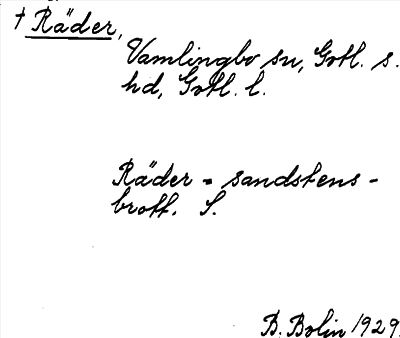 † Räder,
Vamlingbo sn, Gotl. s.
hd, Gotl. l.
Räder = sandstens-
brott. S.
B. Bolin 1929.